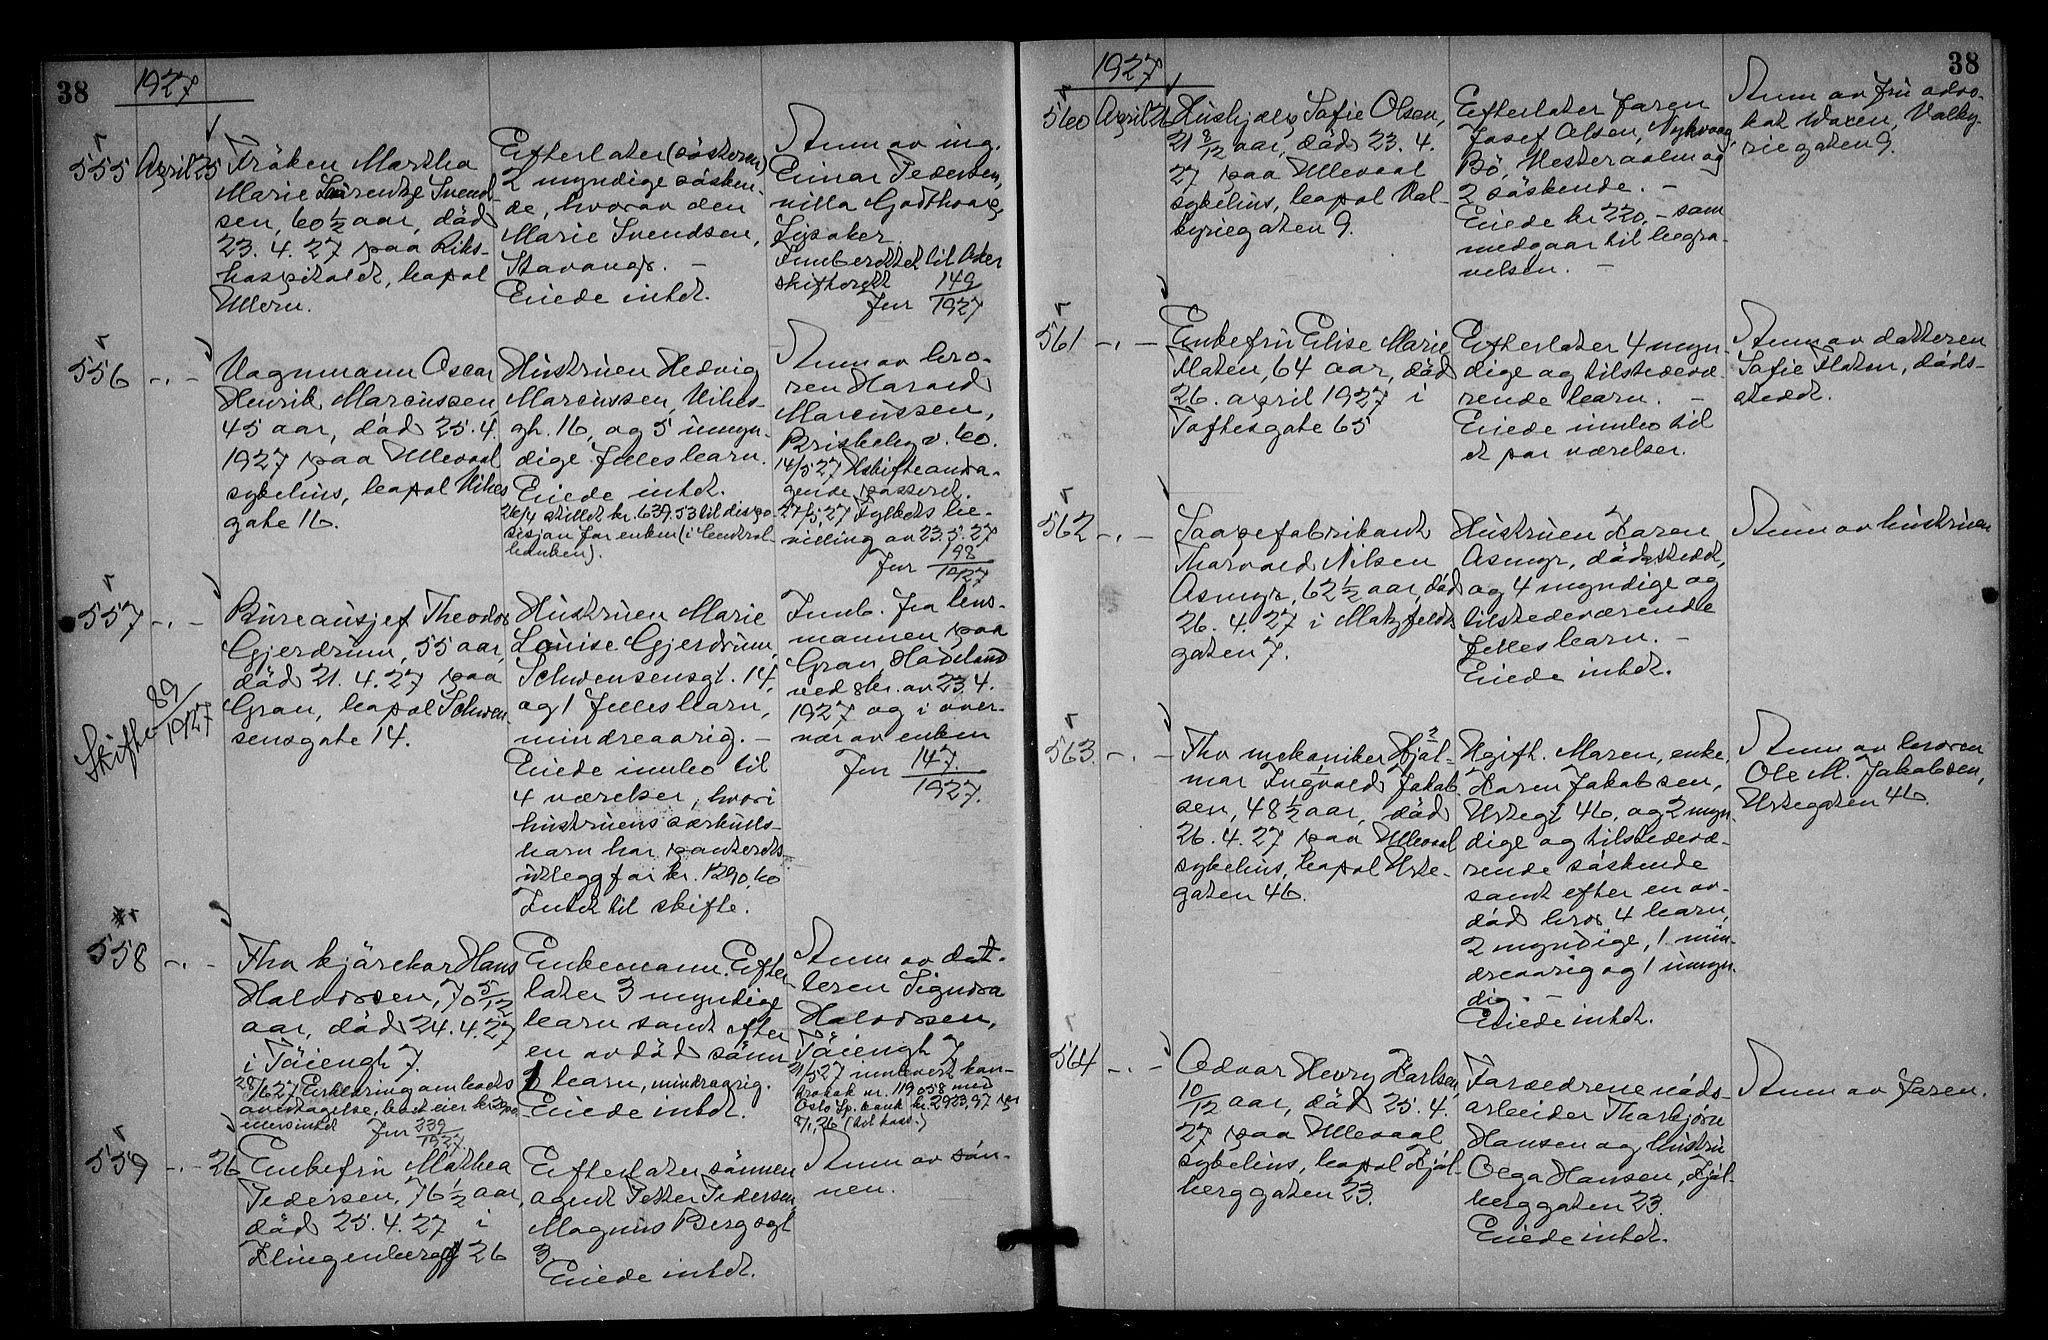 38
1927
555 April 25
Fröken Martha
Marie Lorentze Svend-
sen, 60 ½ aar, död
23. 4. 27 paa Riks-
hospitalet, bopæl
Ullern.
Efterlater (søsteren)
2 myndige søsken-
de, hvorav den
Marie Svendsen,
Stavanger. —
Eiede intet.
Anm av ing.
Einar Pedersen,
villa Godthaab,
Lysaker.
Innberettet til Aker
skifterett 149
Jnr 1927
556 -„-
Vognmann Oscar
Henrik Marcussen,
45 aar, död 25. 4.
1927 paa Ullevaal
sykehus, bopæl Vibes
gate 16.
Hustruen Hedvig
Marcussen, Vibes-
gt. 16, og 5 umyn-
dige fellesbarn.
Eiede intet.
26/4 stillet kr. 639.53 til dispo-
sisjon for enken (i Central-
banken).
Anm av bro-
ren Harald
Marcussen,
Briskebyv. 60.
14/5 27 Uskifteandra-
gende passeret.
27/5 27 Fylkets be-
villing av 23.5.27
Jnr 198
1927
557 -„-
Skifte 89
1927
Bureausjef Theodor
Gjerdrum, 55 aar,
död 21. 4. 27 paa
Gran, bopæl Schwen-
sensgate 14.
Hustruen Marie
Louise Gjerdrum,
Schwensensgt. 14,
og 1 fellesbarn,
mindreaarig. —
Eiede innbo til
4 værelser, hvori
hustruens særkulls-
barn har panterets-
utlegg for kr. 1290,60
Intet til skifte.
Innb. fra lens-
mannen paa
Gran, Hadeland
ved skr. av 23. 4.
1927 og i over-
vær av enken
Jnr 147
1927.
558 -„-
Fhv kjörekar Hans
Halvorsen, 70 5/12
aar, död 24. 4. 27
i Töiengt 7.
28/6 27 Erklæring om bots
overtagelse, boet eier kr 2900
mens intet Jnr 339
1927
Enkemann. Efter-
later 3 myndige
barn samt efter
en avdöd sönn
2 barn, mindreaarig.
Eiede intet.
Anm av dat-
teren Signora
Halvorsen,
Töiengt 7
21/5 27 innlevert kon-
trabok nr. 119058 med
Oslo Sp.bank kr 2923,97 pr
8/1, 26
559 -„- 26
Enkefru Mathea
Pedersen, 76 ½ aar,
död 25. 4. 27 i
Klingenberggt 26
Efterlater sönnen
agent Petter Pedersen,
Magnus Bergsgt
3.
Eiede intet.
Anm av sön-
nen.
38
1927
560 April 26
Hushjelp Sofie Olsen,
21 9/12 aar, död 23. 4.
27 paa Ullevaal
sykehus, bopæl Val-
kyriegaten 9.
Efterlater faren
Josef Olsen, Nykvaag,
Bö, Vesteraalen og
2 söskende. —
Eiede kr 220,- som
medgaar til begra-
velsen. —
Anm av fru advo-
kat Waxen, Valky-
riegaten 9.
561 -„-
Enkefru Elise Marie
Flaten, 64 aar, död
26. april 1927 i
Toftesgate 65
Efterlater 4 myn-
dige og tilstedevæ-
rende barn. —
Eiede innbo til
et par værelser.
Anm av datteren
Sofie Flaten, döds-
stedet.
562 -„-
Saapefabrikant
Thorvald Nilsen
Asmyr, 62 ½ aar, död
26. 4. 27 i Matzfeldts
gaten 7.
Hustruen Karen
Asmyr, dödsstedet,
og 4 myndige og
tilstedeværende
fellesbarn. —
Eiede intet.
Anm av hustruen
563. -„-
Fhv mekaniker Hjal-
mar Ingvald Jakob-
sen, 48 ½ aar, död
26. 4. 27 paa Ullevaal
sykehus, bopæl Urte-
gaten 46.
Ugift. Moren, enke,
Karen Jakobsen,
Urtegt 46, og 2 myn-
dige og tilstedevæ-
rende söskende
samt efter en av-
död bror 4 barn,
2 myndige, 1 min-
dreaarig og 1 umyn-
dig. —
Eiede intet.
Anm av broren
Ole M. Jakobsen,
Urtegaten 46.
564 -„-
Odvar Henry Karlsen,
10/12 aar, död 25. 4.
27 paa Ullevaal
sykehus, bopæl Kjöl-
berggaten 23.
Foreldrene nöds-
arbeider Thorbjörn
Hansen og hustru
Olga Hansen, Kjöl-
berggaten 23.
Eiede intet.
Anm av faren.